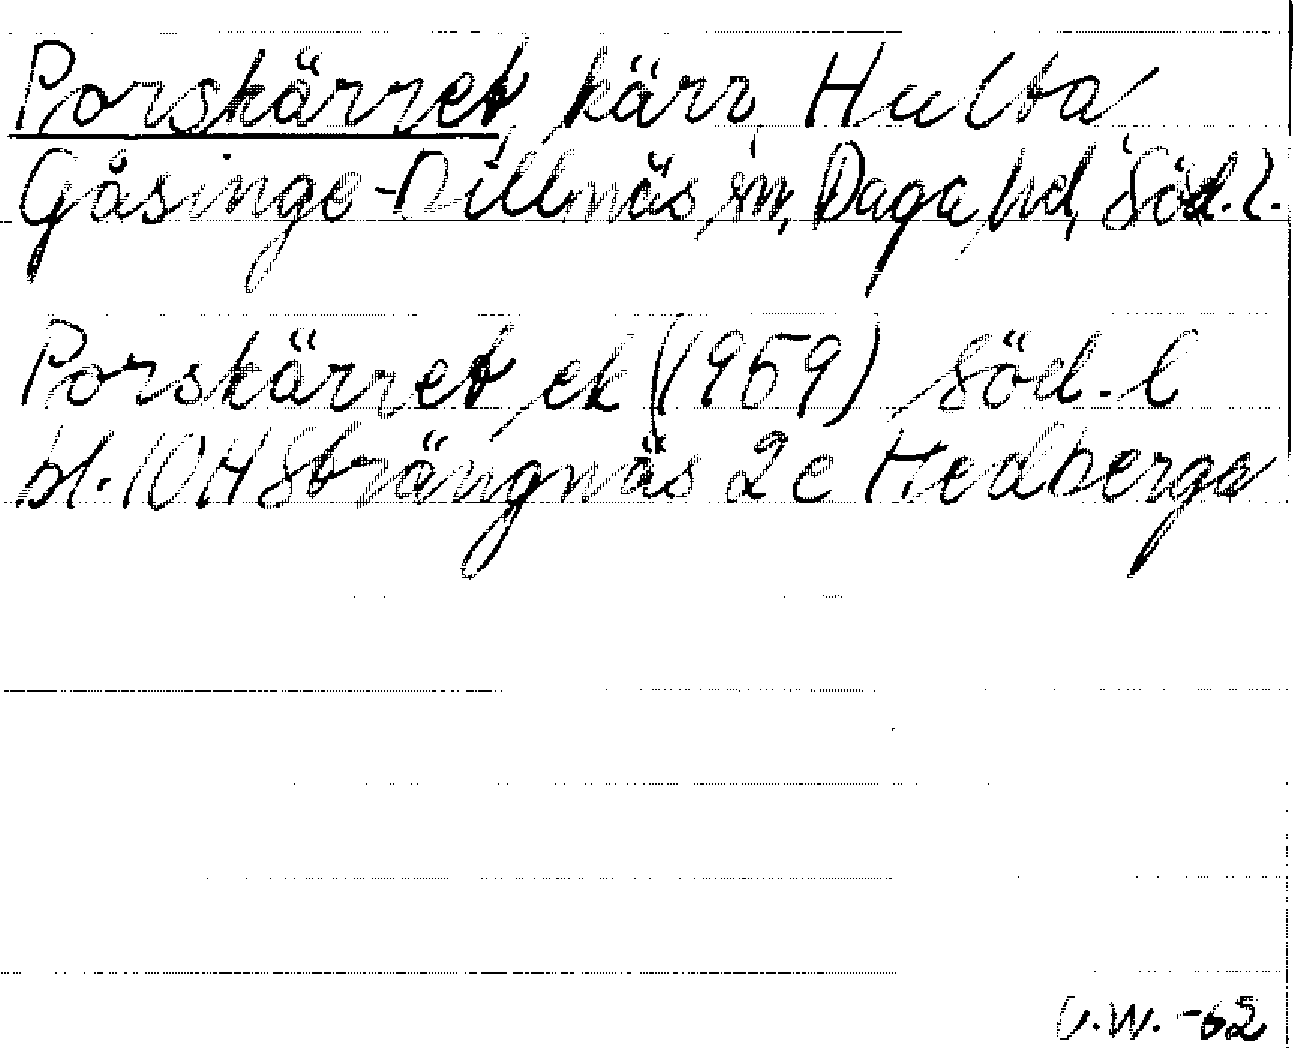 Porskärret, kärr, Hulta,
Gåsinge-Dillnäs sn, Daga hd, Söd.l.
Porskärret ek (1959) Söd. l
bl. 10H Strängnäs 2c Hedberga
U.W. -62